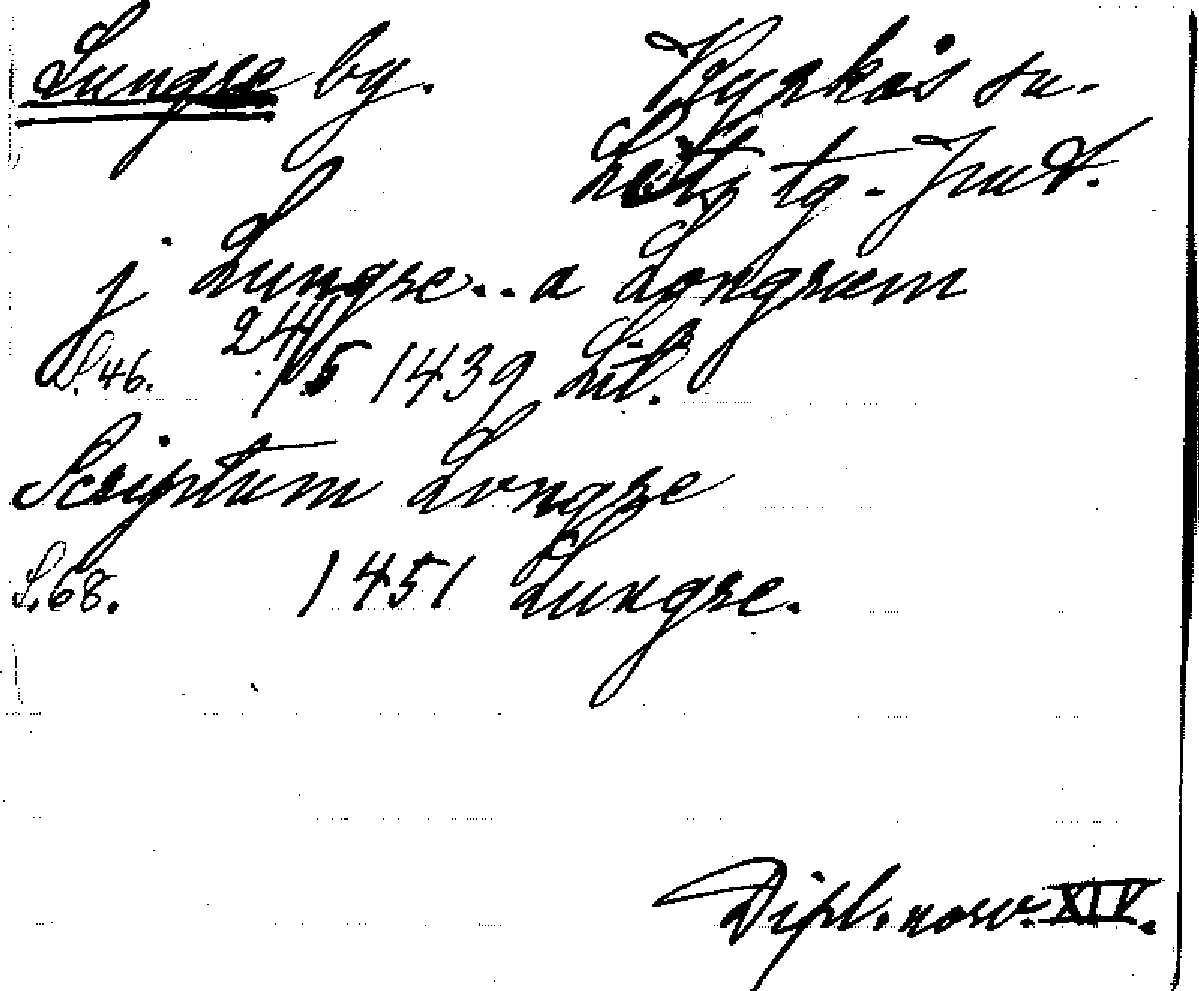 Lungre by. Kyrkås sn.
Lits tg. Jmtl.
j Lungre.. a Longrem
S. 46. 24/5 1439 Lit.
Scriptum Longre
S. 68. 1451 Lungre.
Dipl. norv. XIV.